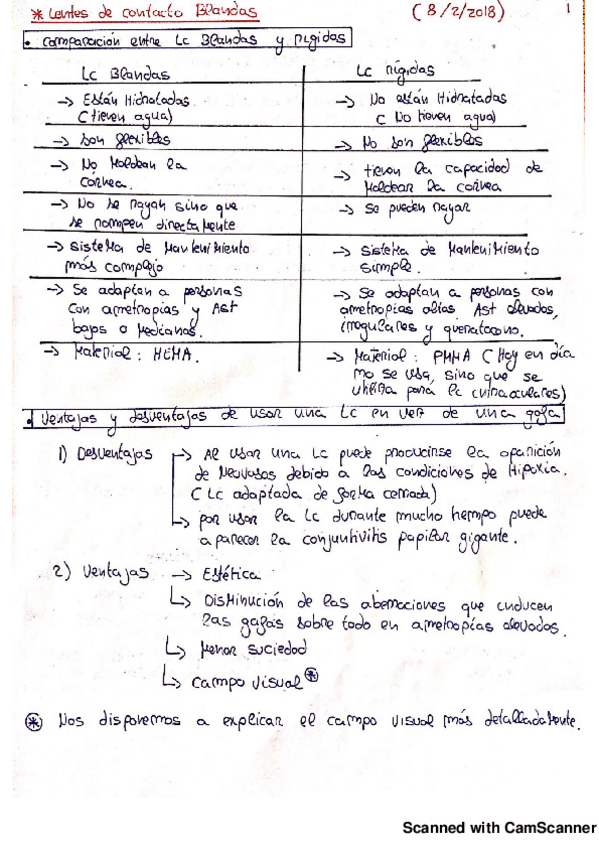 * Lentes de contacto Blandas (8/2/2018) 1
• Comparación entre Lc Blandas y Rígidas
Lc Blandas
Lc Rígidas
→ Están Hidratadas
(tienen agua)
→ No están Hidratadas
(No tienen agua)
→ Son flexibles
→ No son flexibles
→ No Moldean la
córnea.
→ tienen la capacidad de
Moldear la cornea
→ No se rayan sino que
se rompen directamente
→ Se pueden rayar
→ Sistema de Mantenimiento
más complejo
→ Sistema de Mantenimiento
simple.
→ Se adaptan a personas
con ametropias y Ast
bajos o Medianos.
→ Se adaptan a personas con
ametropías altas, Ast elevados,
irregulares y queratocono.
→ Material: HEMA.
→ Material: PMMA (Hoy en día
no se usa, sino que se
utiliza para lc intraoculares)
• Ventajas y desventajas de usar una Lc en vez de una gafa
1) Desventajas → Al usar una Lc puede producirse la aparición
de Neovasos debido a las condiciones de Hipoxia.
(Lc adaptada de forma cerrada)
↳ por usar la Lc durante mucho tiempo puede
aparecer la conjuntivitis papilar gigante.
2) Ventajas → Estética
↳ Disminución de las aberraciones que inducen
las gafas sobre todo en ametropías elevadas.
↳ Menor suciedad
↳ Campo visual *
* Nos disponemos a explicar el campo visual más detalladamente.
Scanned with CamScanner